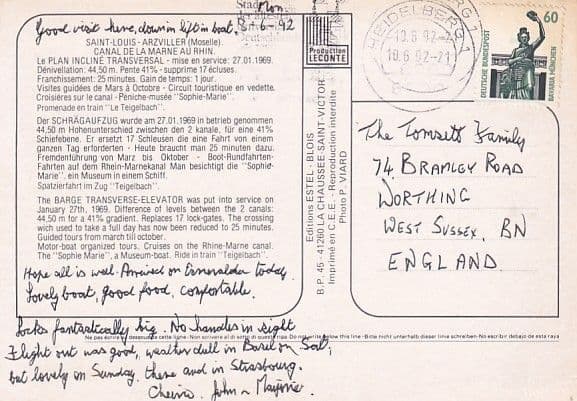 Mon
8-6-92
Good visit here, down in lift in boat.
SAINT-LOUIS - ARZVILLER (Moselle).
CANAL DE LA MARNE AU RHIN.
Le PLAN INCLINÉ TRANSVERSAL - mise en service: 27.01.1969.
Dénivellation: 44,50 m. Pente 41% - supprime 17 écluses.
Franchissement: 25 minutes. Gain de temps: 1 jour.
Visites guidées de Mars à Octobre - Circuit touristique en vedette.
Croisières sur le canal - Péniche-musée "Sophie-Marie".
Promenade en train "Le Teigelbach".
Der SCHRÄGAUFZUG wurde am 27.01.1969 in betrieb genommen
44,50 m Hohenunterschied zwischen den 2 kanäle, für eine 41%
Schiefebene. Er ersetzt 17 Schleusen die eine Fahrt von einem
ganzen Tag erforderten - Heute braucht man 25 minuten dazu.
Fremdenführung von Marz bis Oktober - Boot-Rundfahrten-
Fahrten auf dem Rhein-Marnekanal Man besichtigt die "Sophie-
Marie", ein Museum in einem Schiff.
Spazierfahrt im Zug "Teigelbach".
The BARGE TRANSVERSE-ELEVATOR was put into service on
January 27th, 1969. Difference of levels between the 2 canals:
44,50 m for a 41% gradient. Replaces 17 lock-gates. The crossing
wich used to take a full day has now been reduced to 25 minutes.
Guided tours from march till october.
Motor-boat organized tours. Cruises on the Rhine-Marne canal.
The "Sophie Marie", a Museum-boat. Ride in train "Teigelbach".
Hope all is well. Arrived on Esmeralda today.
Lovely boat, good food, comfortable.
Locks fantastically big. No handles in sight
Ne pas écrire
Non scrivere al di sotto di questa riga
Do not write below this line - Bitte nicht unterhalb dieser linie schreiben - No escribir debajo de esta raya
Flight out was good, weather dull in Basel on Sat,
but lovely on Sunday, there and in Strasbourg.
Cheerio. John & Marjorie
Production
LECONTE
Editions ESTEL - BLOIS
B.P. 45 - 41260 LA CHAUSSEE-SAINT-VICTOR
Imprimé en C.E.E. - Reproduction interdite
Photo P. VIARD
HEIDELBERG 1
10.6.92-21
60
DEUTSCHE BUNDESPOST
BAVARIA MÜNCHEN
The Tomsett Family
74, BRAMLEY ROAD
WORTHING
WEST SUSSEX, BN
ENGLAND.